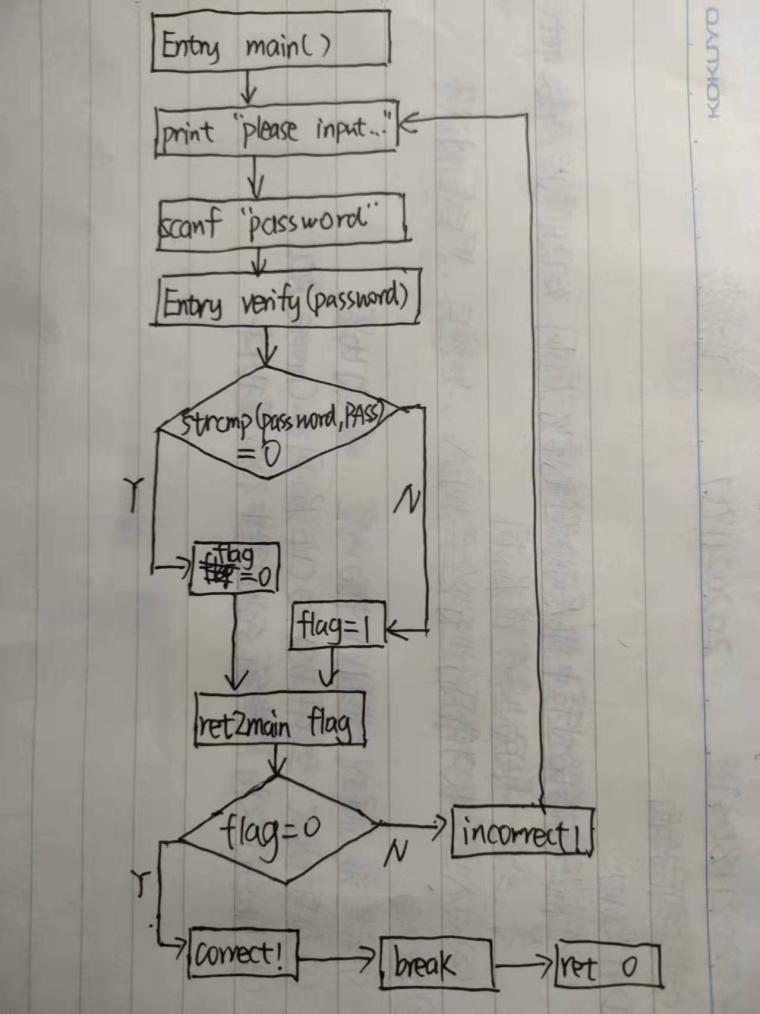 KOKUYO
Entry main()
print "please input..."
scanf "password"
Entry verify(password)
strcmp(password,PASS)
=0
Y
N
flag
=0
flag=1
ret2main flag
flag=0
N
incorrect!
Y
correct!
break
ret 0